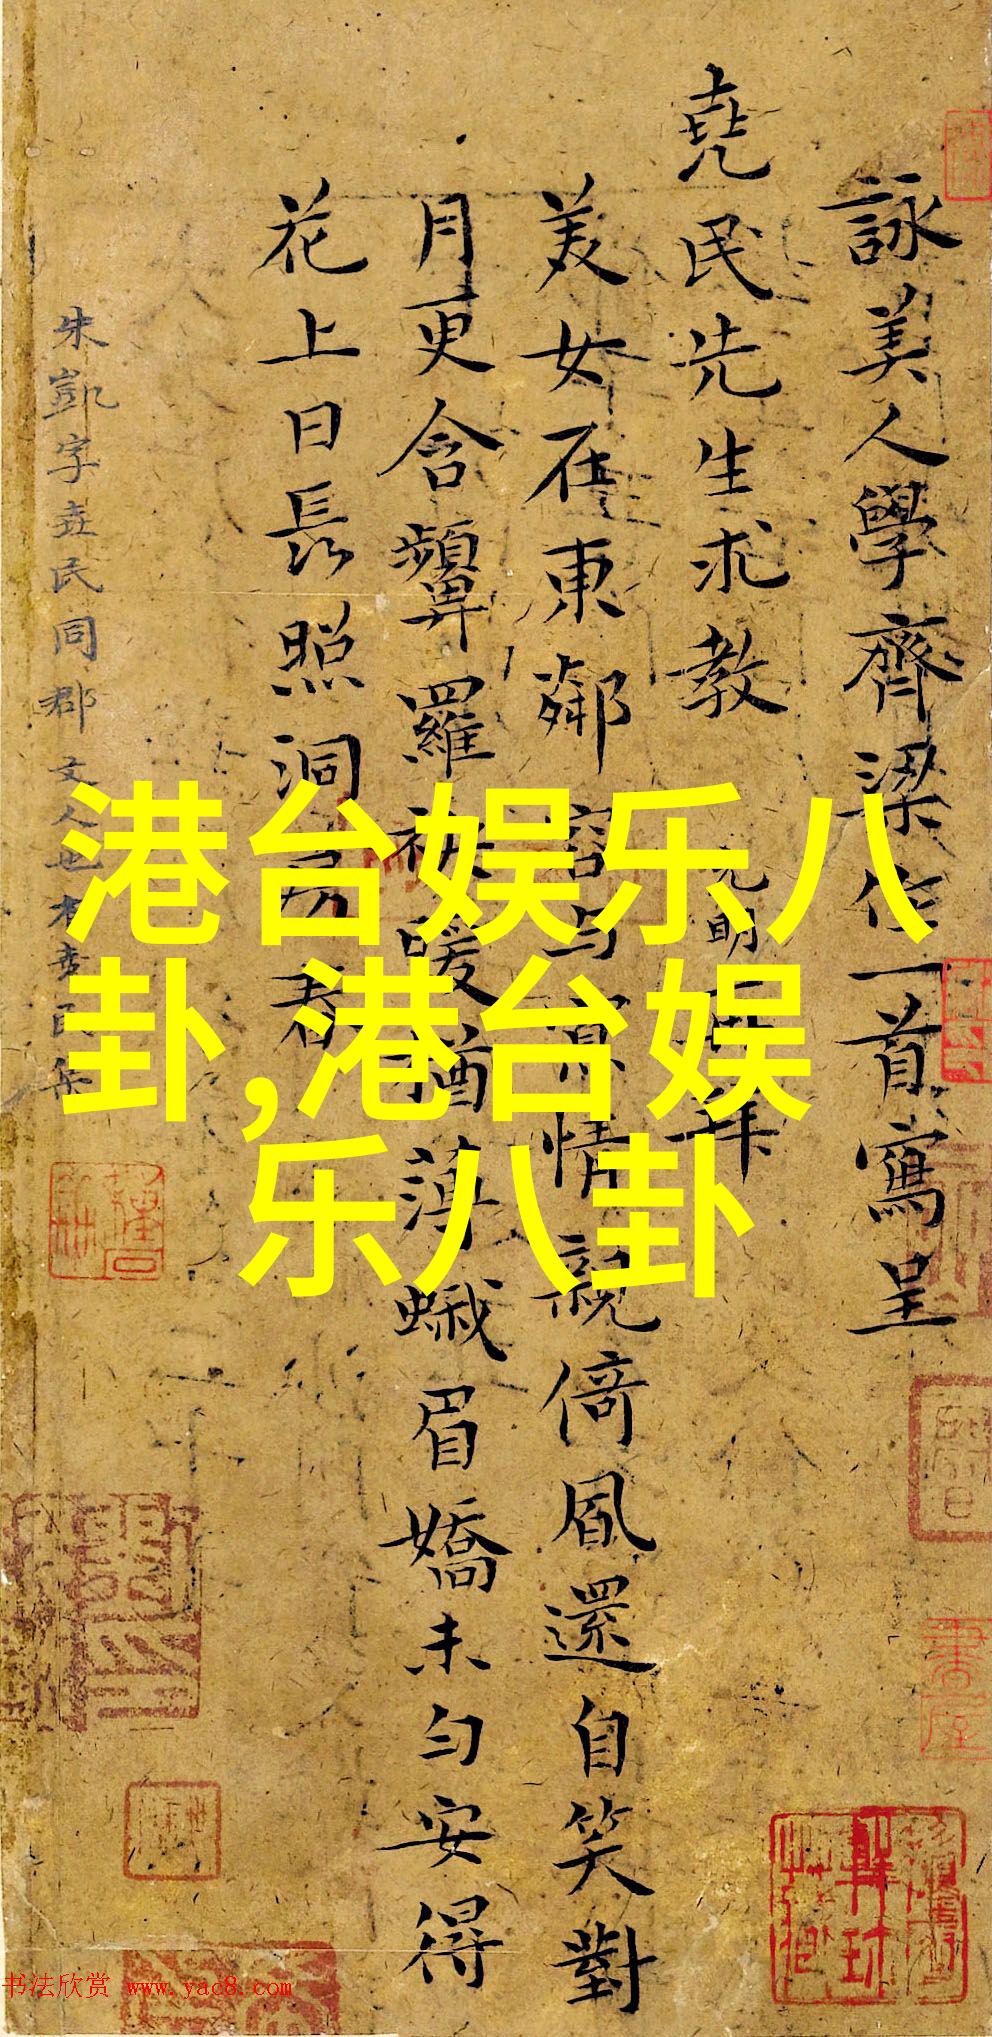 詠美人學齊梁作一首寫呈
堯民先生求教
美女在東鄰容與
情親倚風還自笑對
月更含顰羅暖猶薄蛾眉嬌未勻安得
花上日長照洞房春
朱凱字堯民同郡文人也
港台娱乐八
卦,港台娱
乐八卦
书法欣赏 www.yac8.com